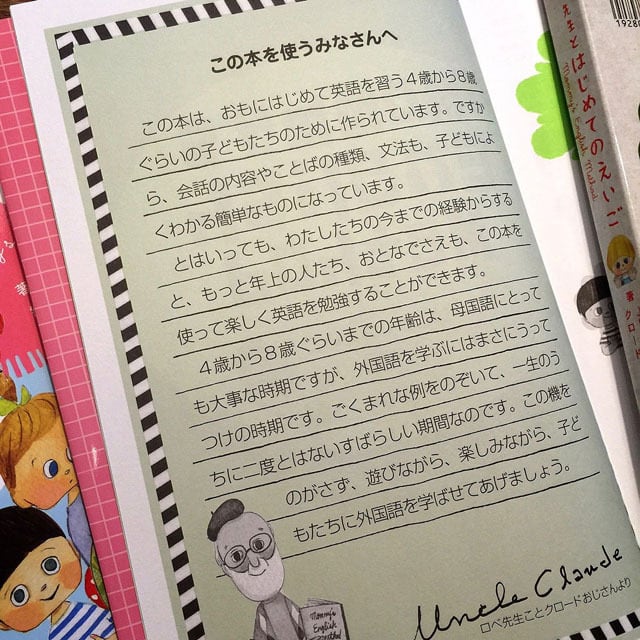 この本を使うみなさんへ
この本は、おもにはじめて英語を習う4歳から8歳
ぐらいの子どもたちのために作られています。ですか
ら、会話の内容やことばの種類、文法も、子どもによ
くわかる簡単なものになっています。
とはいっても、わたしたちの今までの経験からする
と、もっと年上の人たち、おとなでさえも、この本を
使って楽しく英語を勉強することができます。
4歳から8歳ぐらいまでの年齢は、母国語にとって
も大事な時期ですが、外国語を学ぶにはまさにうって
つけの時期です。ごくまれな例をのぞいて、一生のう
ちに二度とはないすばらしい期間なのです。この機を
のがさず、遊びながら、楽しみながら、子ど
もたちに外国語を学ばせてあげましょう。
Uncle Claude
ロベ先生ことクロードおじさんより
Mommy's
English
先生とはじめてのえいご
著 クロード
1928
著